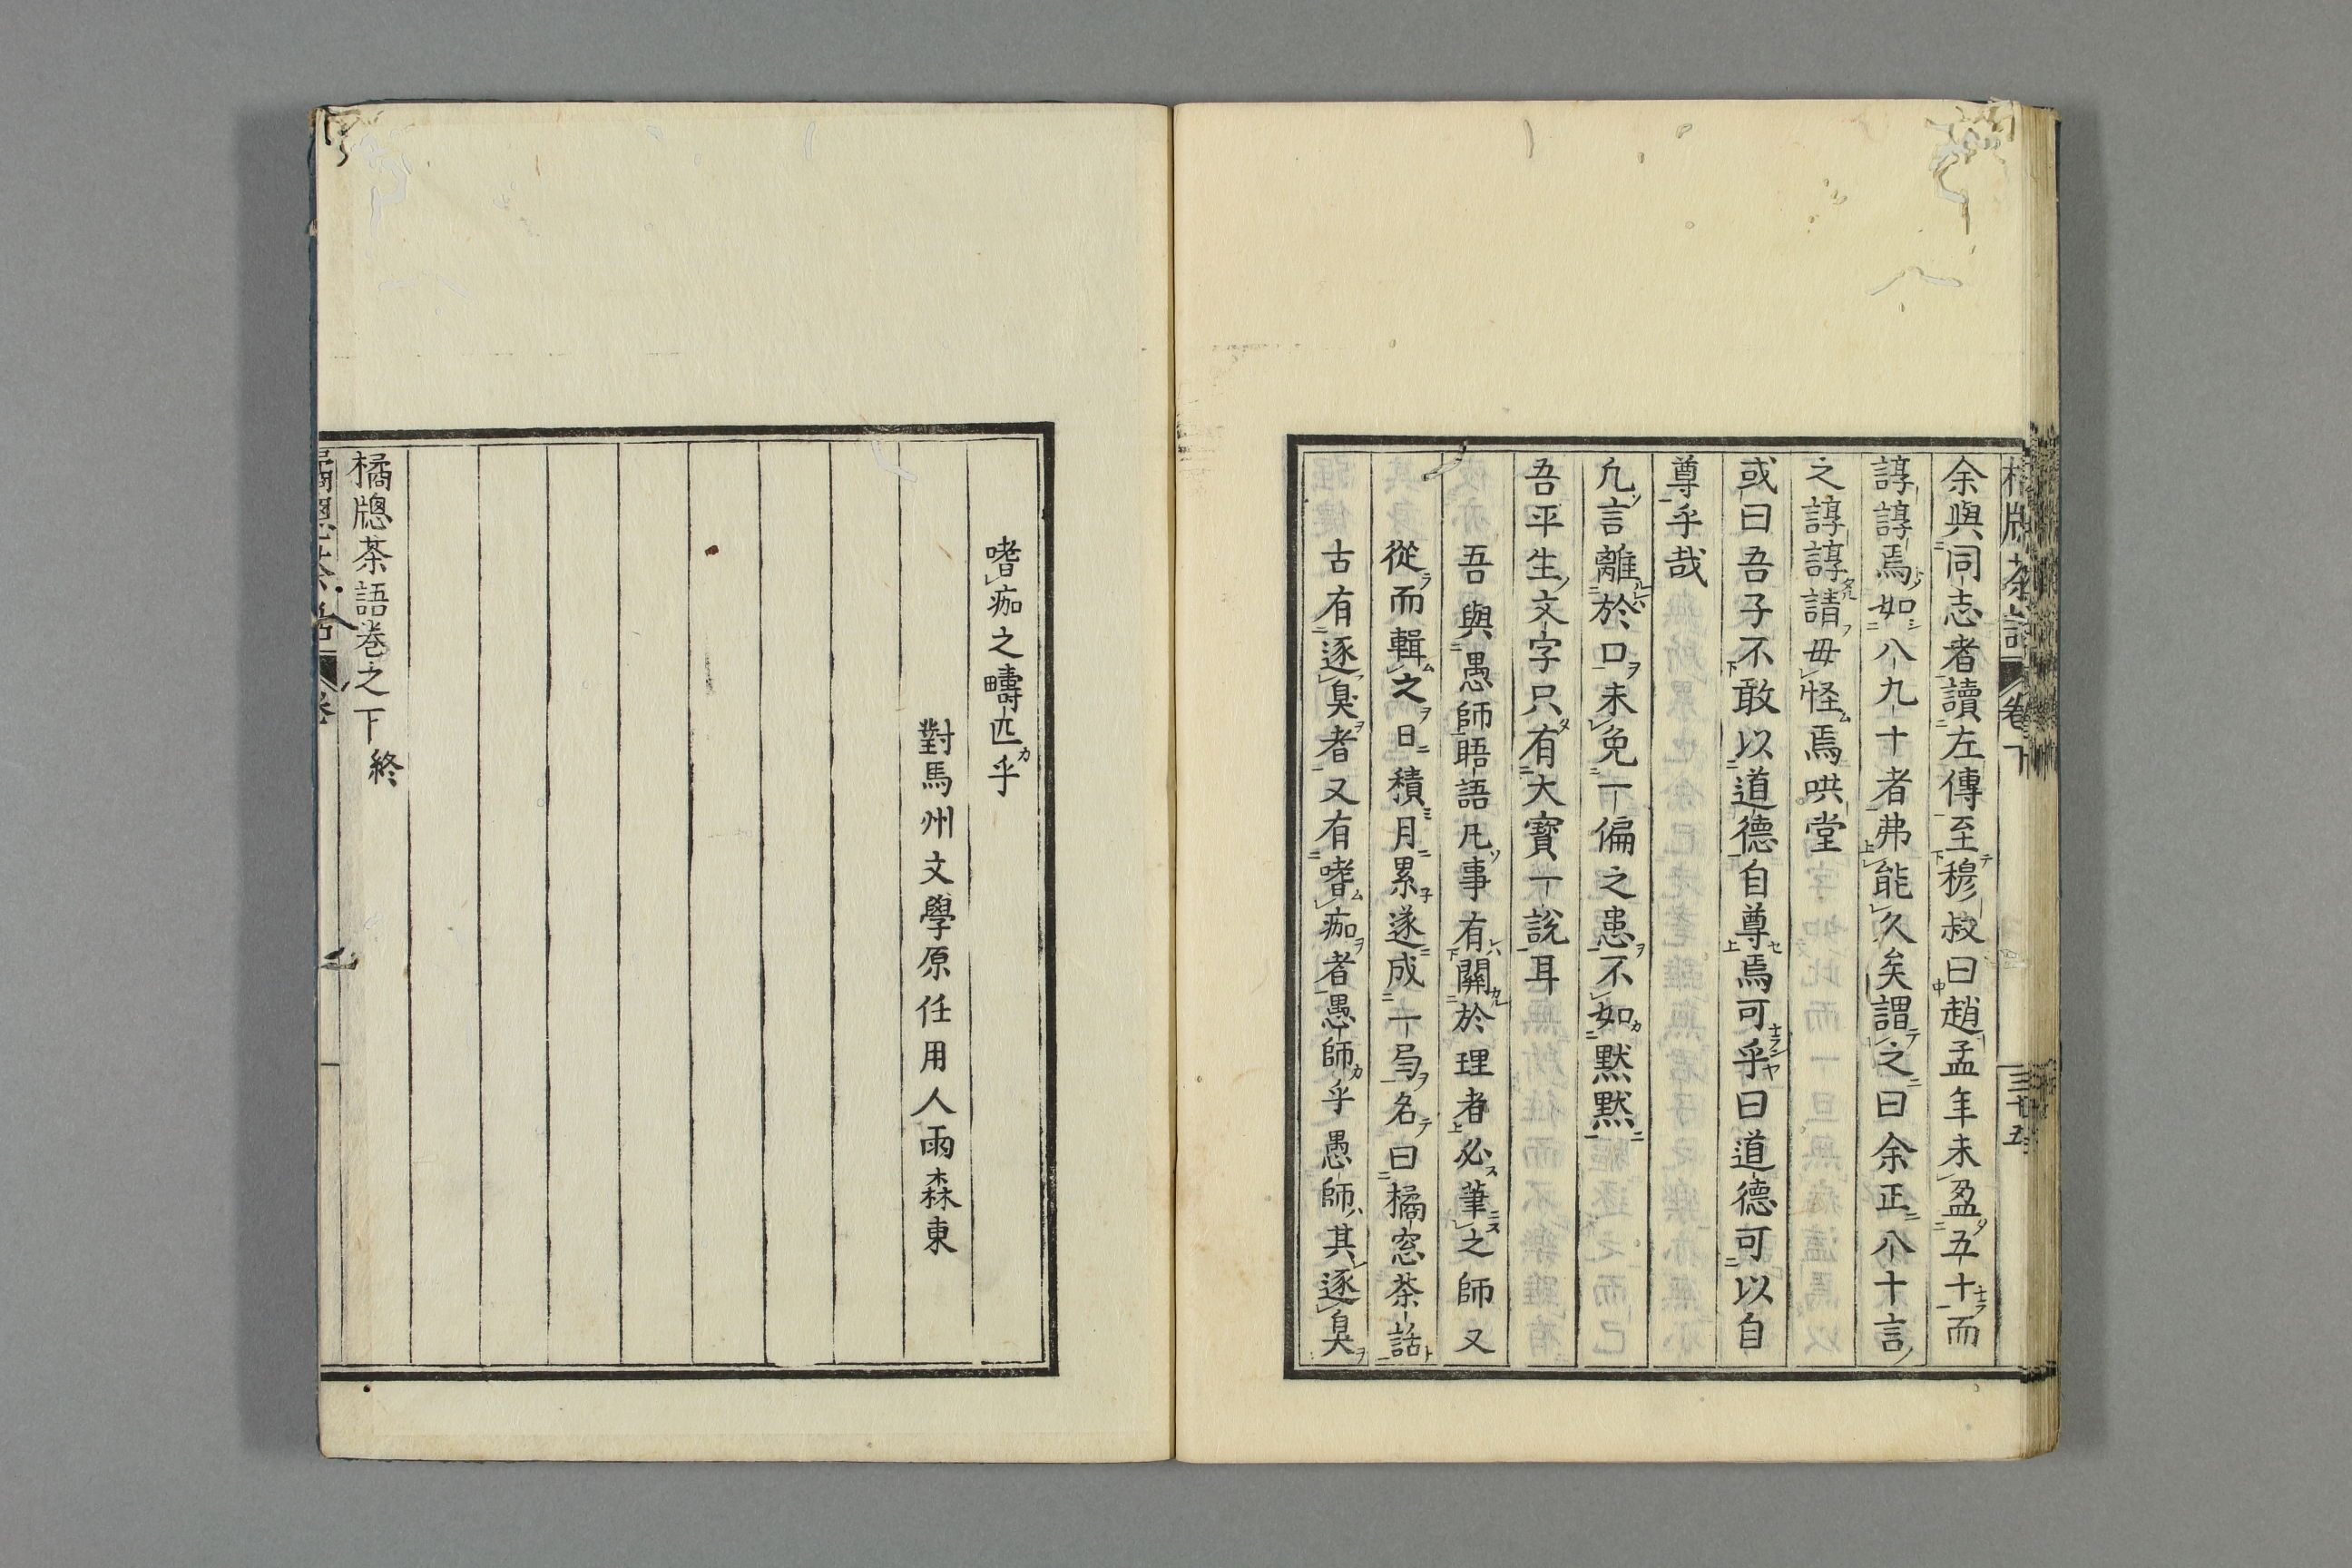 余與同志者讀左傳至穆叔曰趙孟年未盈五十而
諄諄焉如八九十者弗能久矣謂之曰余正八十言
之諄諄請毋怪焉哄堂
或曰吾子不敢以道德自尊焉可乎曰道德可以自
尊乎哉
凢言離於口未免一偏之患不如黙黙
吾平生文字只有大寳一說耳
吾與愚師晤語凡事有關於理者必筆之師又
從而輯之日積月累遂成一㢧名曰橘窓茶話
古有逐臭者又有嗜痂者愚師乎愚師其逐臭
嗜痂之疇匹乎
對馬州文學原任用人雨森東
橘牎茶語巻之下終